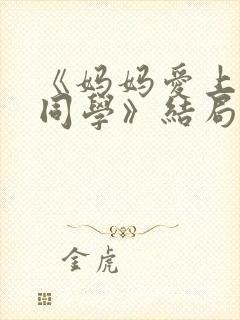 《妈妈愛上
同學》結局
金虎